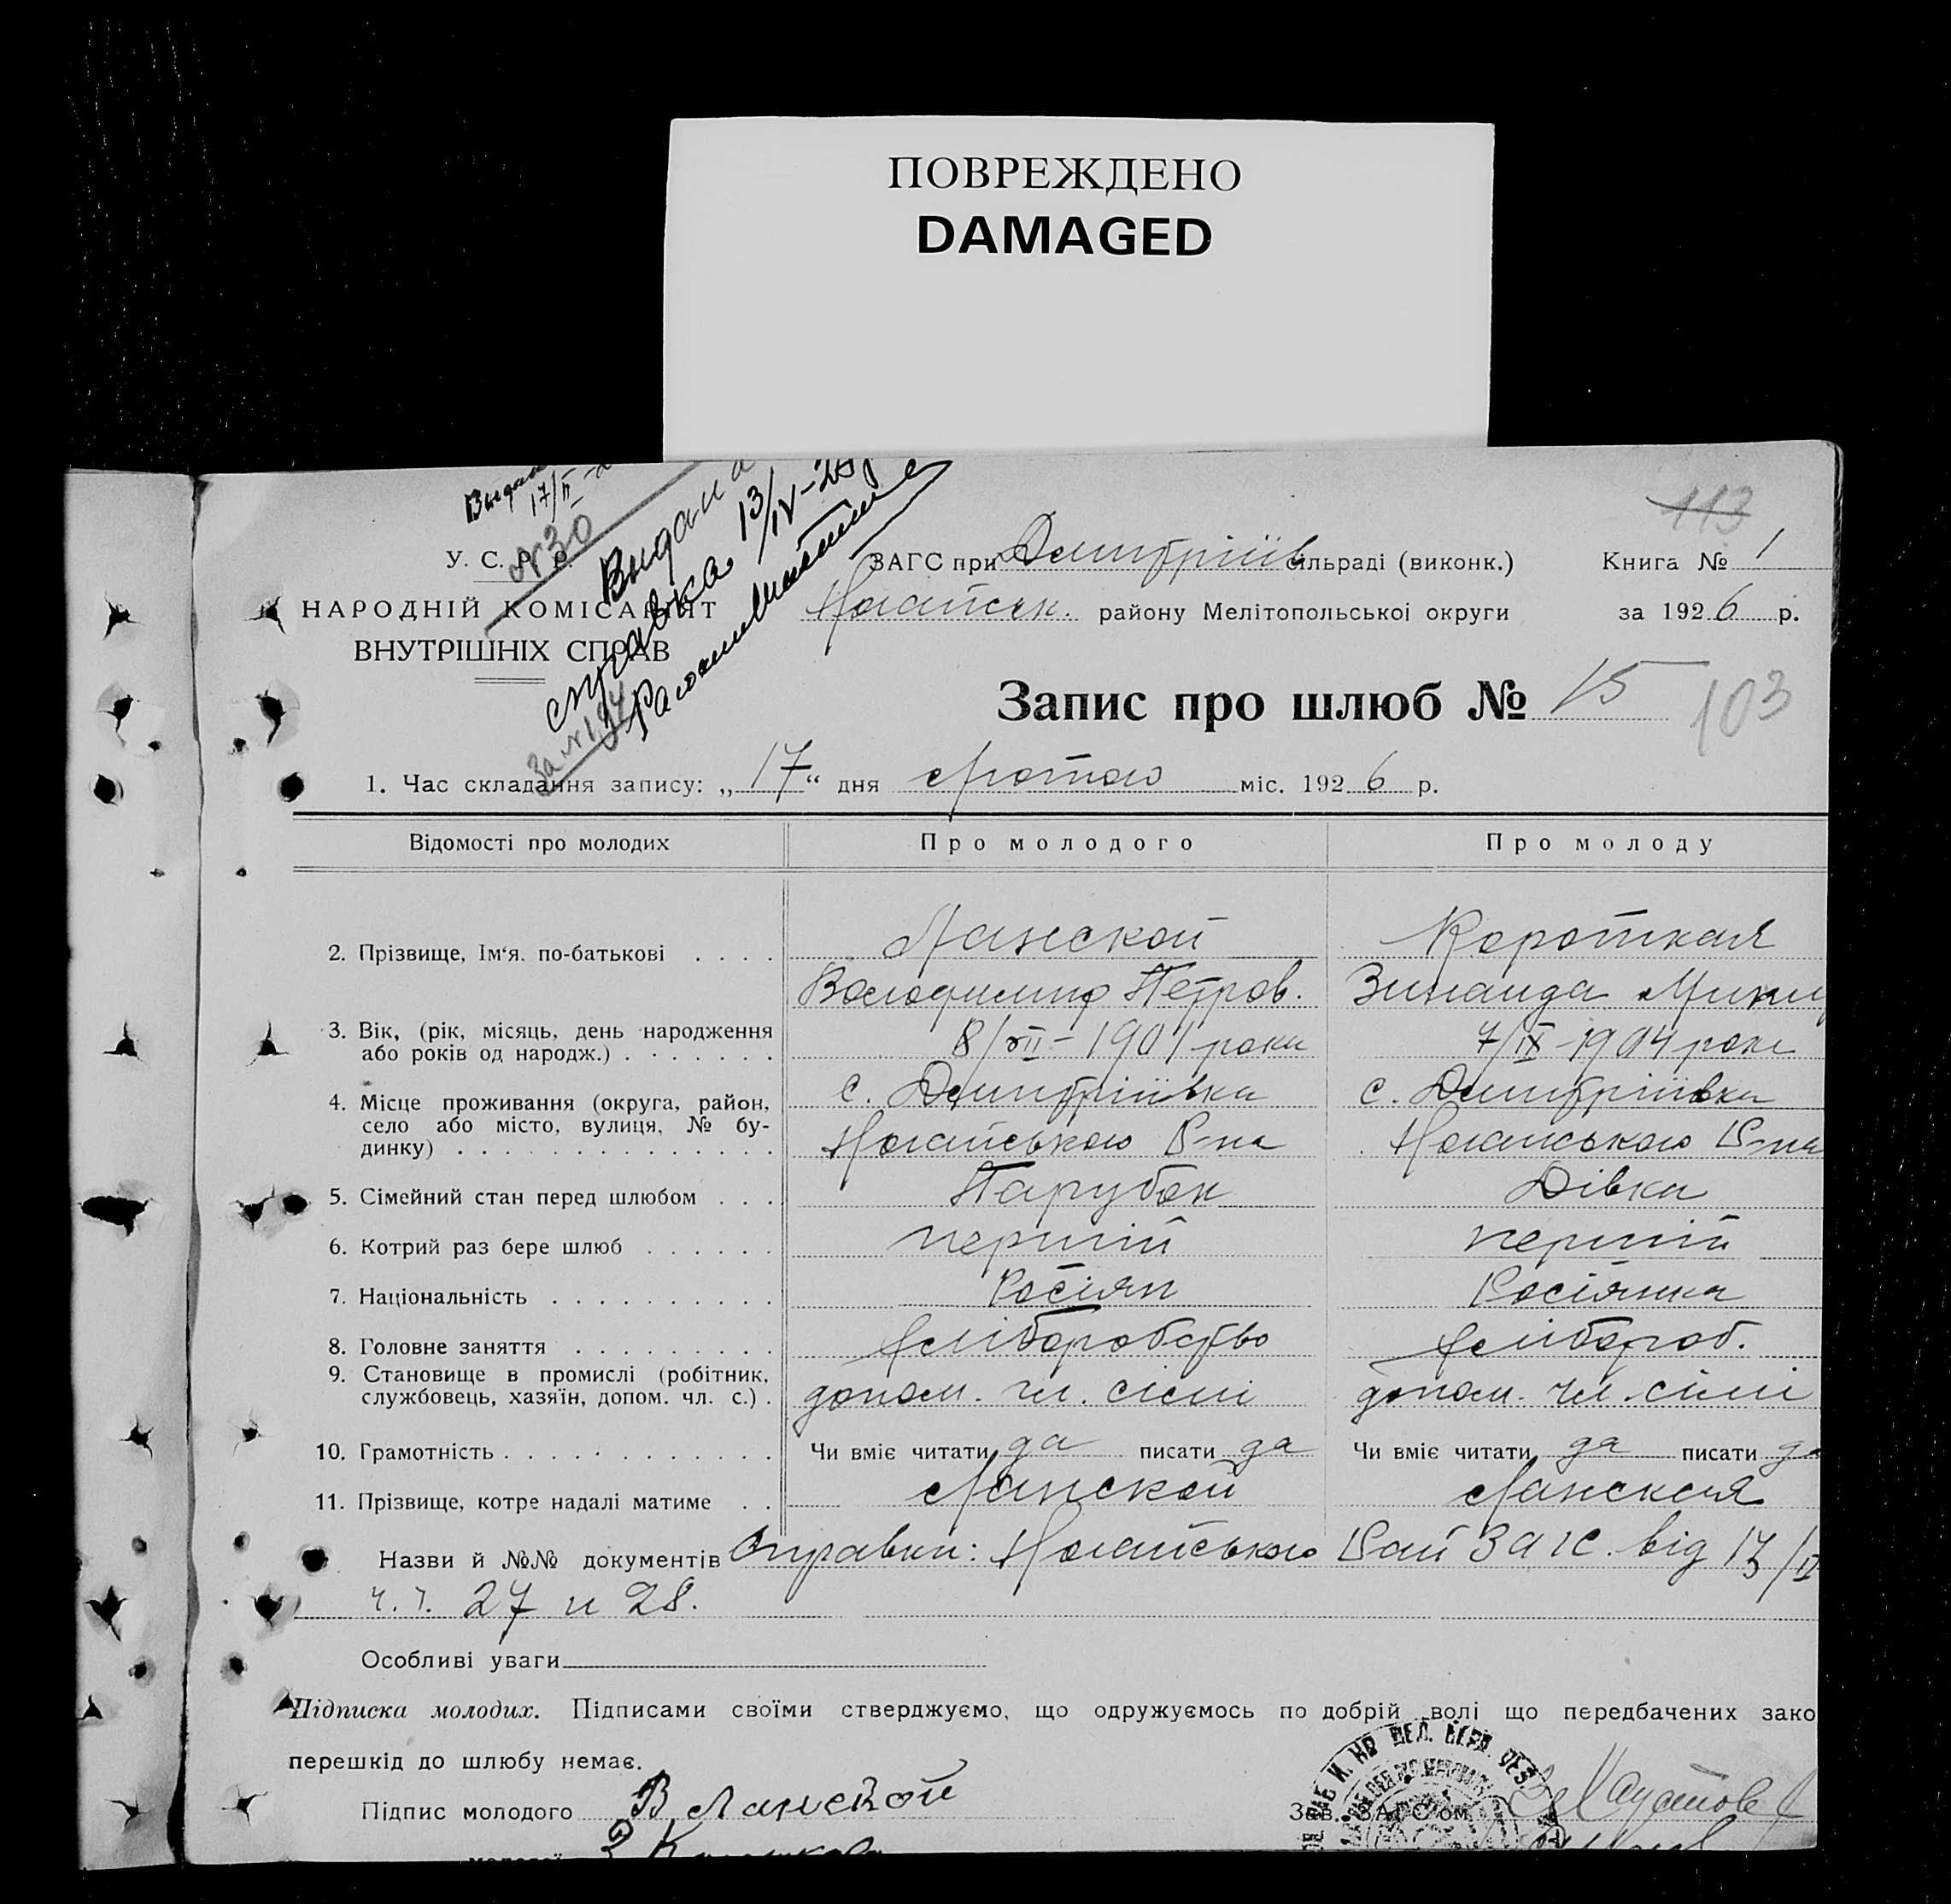 ПОВРЕЖДЕНО
DAMAGED
113
Выдана
17/II
№ 30
Выдана
справка 13/IV-28
За № 194
У. С. Р. Р.
НАРОДНІЙ КОМІСАРІЯТ
ВНУТРІШНІХ СПРАВ
ЗАГС при Дмитріїв сільраді (виконк.) Книга № 1
Ногайськ. району Мелітопольської округи за 1926 р.
Запис про шлюб № 15 103
1. Час складання запису: „17“ дня Лютого міс. 1926 р.
Відомості про молодих Про молодого Про молоду
2. Прізвище, Ім‘я. по-батькові Ланской Короткая
Володимир Петров. Зинаида Мики
3. Вік, (рік, місяць, день народження 8/VII-1901 роки 7/IX-1904 роки
або років од народж.)
4. Місце проживання (округа, район, с. Дмитріївка с. Дмитріївка
село або місто, вулиця, № бу-
динку) Ногайського Р-на Ногайського Р-на
5. Сімейний стан перед шлюбом Парубок Дівка
6. Котрий раз бере шлюб перший перший
7. Національність Росіян Росіянка
8. Головне заняття хліборобство хлібороб.
9. Становище в промислі (робітник,
службовець, хазяїн, допом. чл. с.) допом. чл. сімї допом. чл. сімї
10. Грамотність Чи вміє читати да писати да Чи вміє читати да писати да
11. Прізвище, котре надалі матиме Ланской Ланская
Назви й №№ документів Справки: Ногайського Рай ЗАГС. від 17/II
ч.ч. 27 и 28.
Особливі уваги
Підписка молодих. Підписами своїми стверджуємо, що одружуємось по добрій волі що передбачених зако
перешкід до шлюбу немає.
Підпис молодого В Ланской Зав. ЗАГС'ом